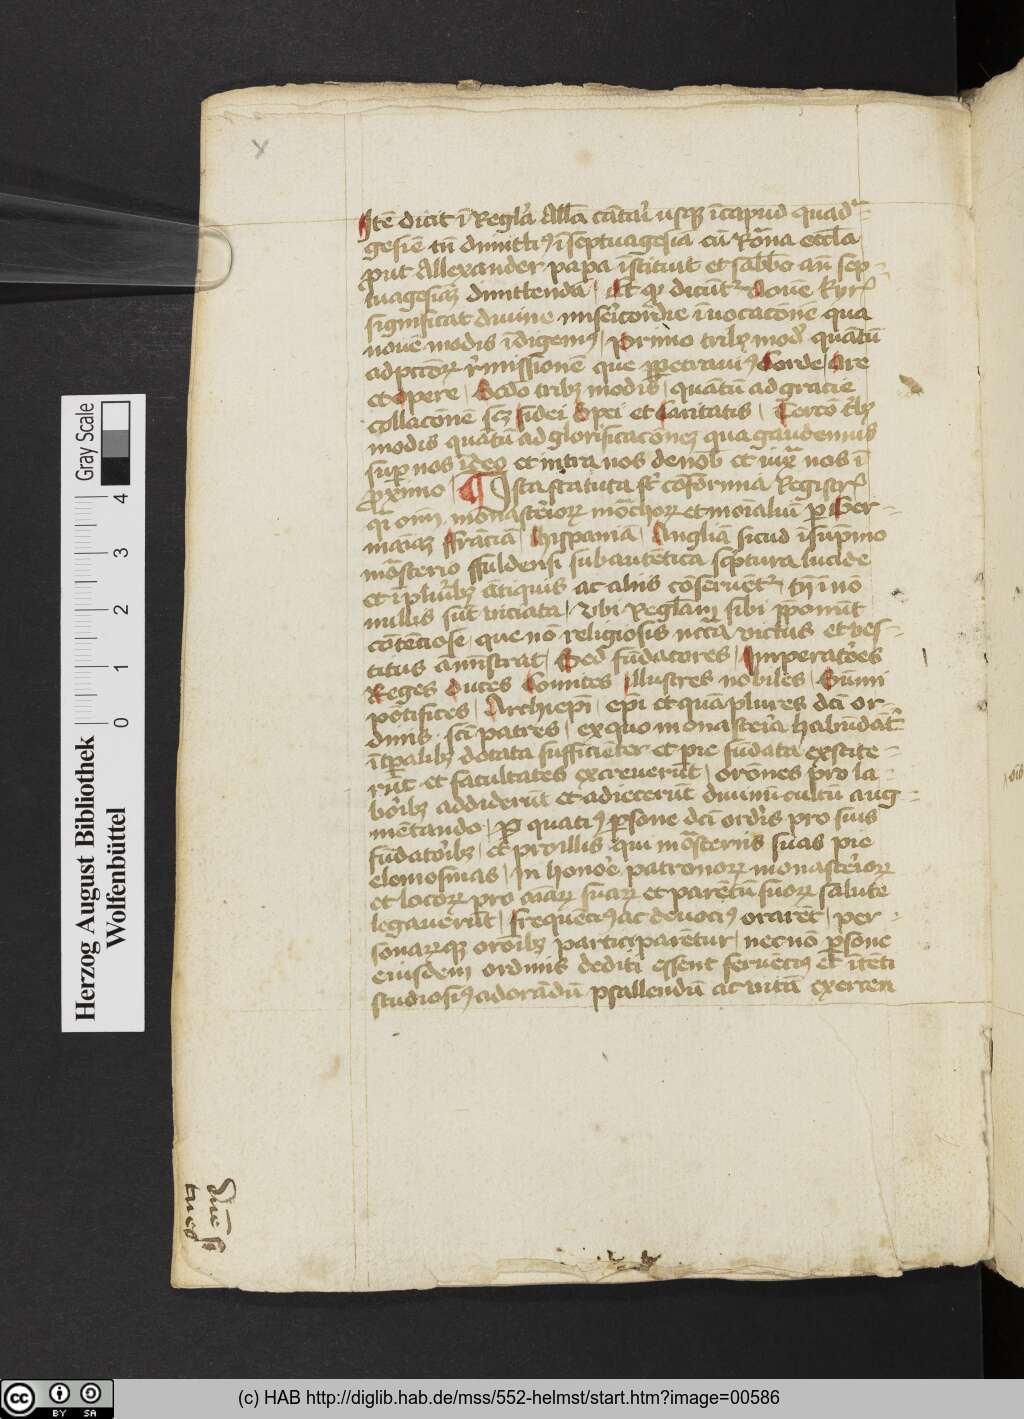 Itē dicit ī Regl̄a All̄a cātat᷑ usq̢ ī capud quadra-
gesiē tn̄ dimittit᷑ ī septuagesia cū Rōna ecctia
prout Allexander papa īstituit et sabb̄o an̄ sep-
tuagesiaꝫ dimittendā Et ꝙ dicūt᷑ Noue kyr
significat diuine misericordie ī uocacōnem qua
nouē modis īdigemus Primo tribꝫ mod quātū
ad pctōrꝝ remissionē que ꝑpetrauimus Corde Ore
et Opere Sc̄do tribꝫ modis quātū ad gracie
collacōnē scꝫ Fidei Spei et Caritatis Tercō tribꝫ
modis quātū ad glorificacōneꝫ qua gaudemus
suꝑ nos ī deo et intra nos de nob et iuxta nos ī
proximo ¶ Ista statuta st̄ cōformia Registr
qr̄ oīm monasteriorꝝ mōchorꝝ et moīaliū ꝑ Ger-
maīaꝫ Frāciā hispaniā Angliā sicud ī sup̄mo
mōsterio Ffuldensi sub autētica scptura lucide
et ī pluribꝫ ātiquis ac aliis cōseruēt᷑ tn̄ ī nō
nullis sūt viciata Vbi Reglam sibi ꝓponūt
cōtēciose que nō religiosis nccīa victus et ves-
titus aministrat Sed fūdatores Imperatōes
Reges Duces Comites illustres nobiles Sūmi
pōtifices Archiepī epī et quāplures dcī or-
dinis scī patres ex quo monasteia habūdāt᷑
ī tꝑalibꝫ dotata sufficiēter et pie fūdata exstite-
rūt et facultates excreuerūt orōnes pro la-
boribꝫ addiderūt et adiecerūt diuinū cultū aug-
mētando ꝑ quatis ꝑsone dcī ordīs pro suis
fūdatoribꝫ et pro illis qui mōsteriis suas pie
elemosinas In honorē patronorꝝ monasteriorꝝ
et locorꝝ pro aīarꝝ suarꝝ et parētū suorꝝ salute
legauerūt frequēcius ac deuocius orarēt per-
sonarꝝq̢ orōibꝫ participarētur necnō ꝑsone
eiusdem ordinis dediti essent feruēcius et ītēti
studiosius ad orādū psallendū ac vitā exercen
Herzog August Bibliothek
Wolfenbüttel
Gray Scale
0 1 2 3 4
CC BY SA
(c) HAB http://diglib.hab.de/mss/552-helmst/start.htm?image=00586